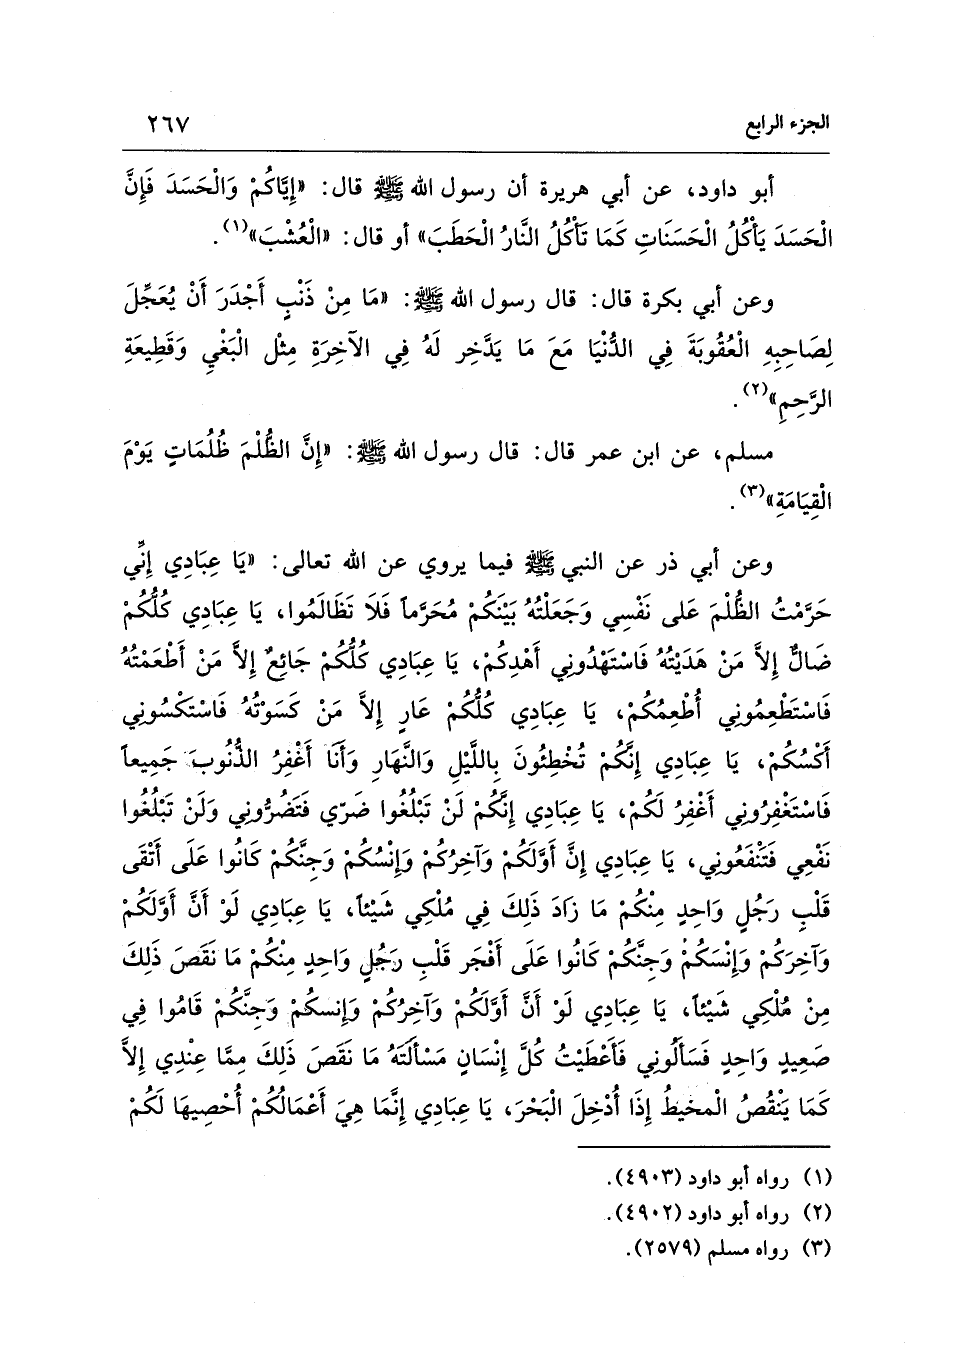 الجزء الرابع ٢٦٧
أبو داود، عن أبي هريرة أن رسول الله ﷺ قال: «إِيَّاكُمْ وَالْحَسَدَ فَإِنَّ
الْحَسَدَ يَأْكُلُ الْحَسَنَاتِ كَمَا تَأْكُلُ النَّارُ الْحَطَبَ» أو قال: «الْعُشْبَ»(١).
وعن أبي بكرة قال: قال رسول الله ﷺ: «مَا مِنْ ذَنْبٍ أَجْدَرَ أَنْ يُعَجِّلَ
لِصَاحِبِهِ الْعُقُوبَةَ فِي الدُّنْيَا مَعَ مَا يَدَّخِر لَهُ فِي الآخِرَةِ مِثْل الْبَغْيِ وَقَطِيعَةِ
الرَّحِمِ»(٢).
مسلم، عن ابن عمر قال: قال رسول الله ﷺ: «إِنَّ الظُّلْمَ ظُلُمَاتٍ يَوْمَ
الْقِيَامَةِ»(٣).
وعن أبي ذر عن النبي ﷺ فيما يروي عن الله تعالى: «يَا عِبَادِي إِنِّي
حَرَّمْتُ الظُّلْمَ عَلى نَفْسِي وَجَعَلْتُهُ بَيْنَكُمْ مُحَرَّماً فَلَا تَظَالَمُوا، يَا عِبَادِي كُلُّكُمْ
ضَالٌّ إِلاَّ مَنْ هَدَيْتُهُ فَاسْتَهْدُونِي أَهْدِكُمْ، يَا عِبَادِي كُلُّكُمْ جَائِعٌ إِلاَّ مَنْ أَطْعَمْتُهُ
فَاسْتَطْعِمُونِي أُطْعِمُكُمْ، يَا عِبَادِي كُلُّكُمْ عَارٍ إِلاَّ مَنْ كَسَوْتُهُ فَاسْتَكْسُونِي
أَكْسُكُمْ، يَا عِبَادِي إِنَّكُمْ تُخْطِئُونَ بِاللَّيْلِ وَالنَّهَارِ وَأَنَا أَغْفِرُ الذُّنُوبَ جَمِيعاً
فَاسْتَغْفِرُونِي أَغْفِرُ لَكُمْ، يَا عِبَادِي إِنَّكُمْ لَنْ تَبْلُغُوا ضَرِّي فَتَضُرُّونِي وَلَنْ تَبْلُغُوا
نَفْعِي فَتَنْفَعُونِي، يَا عِبَادِي إِنَّ أَوَّلَكُمْ وَآخِرُكُمْ وَإِنْسُكُمْ وَجِنَّكُمْ كَانُوا عَلَى أَتْقَى
قَلْبِ رَجُلٍ وَاحِدٍ مِنْكُمْ مَا زَادَ ذَلِكَ فِي مُلْكِي شَيْئاً، يَا عِبَادِي لَوْ أَنَّ أَوَّلَكُمْ
وَآخِرَكُمْ وَإِنْسَكُمْ وَجِنَّكُمْ كَانُوا عَلَى أَفْجَر قَلْبِ رَجُلٍ وَاحِدٍ مِنْكُمْ مَا نَقَصَ ذَلِكَ
مِنْ مُلْكِي شَيْئاً، يَا عِبَادِي لَوْ أَنَّ أَوَّلَكُمْ وَآخِرُكُمْ وَإِنسكُمْ وَجِنَّكُمْ قَامُوا فِي
صَعِيدٍ وَاحِدٍ فَسَأَلُونِي فَأَعْطَيْتُ كُلَّ إِنْسَانٍ مَسْأَلَتَهُ مَا نَقَصَ ذَلِكَ مِمَّا عِنْدِي إِلاَّ
كَمَا يَنْقُصُ الْمخيطُ إِذَا أُدْخِلَ الْبَحْرَ، يَا عِبَادِي إِنَّمَا هِيَ أَعْمَالُكُمْ أُحْصِيهَا لَكُمْ
(١) رواه أبو داود (٤٩٠٣).
(٢) رواه أبو داود (٤٩٠٢).
(٣) رواه مسلم (٢٥٧٩).